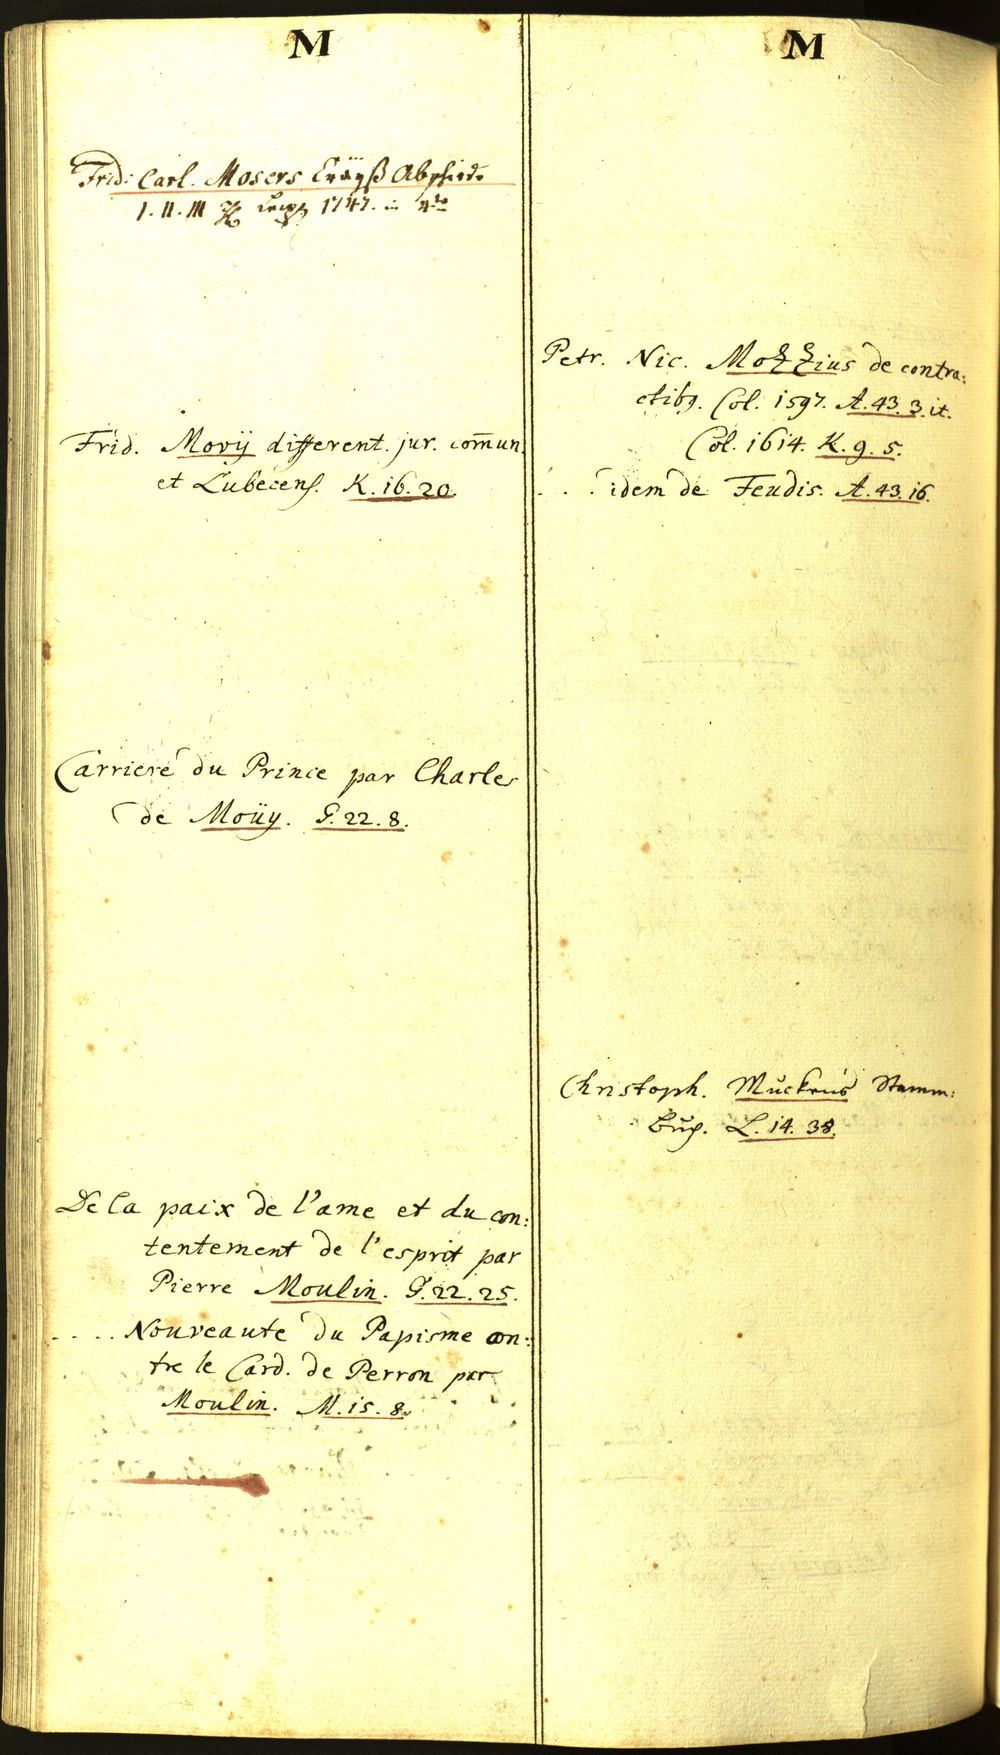 M
Frid: Carl. Mosers Crayß Abschied.
I. II. III Leipz 1747. in 4to
Frid. Movij different. jur. com̄un.
et Lubecens. K. 16. 20.
Carriere du Prince par Charles
de Moüy. G. 22. 8.
De la paix de l'ame et du con:
tentement de l'esprit par
Pierre Moulin. G. 22. 25.
.... Nouveaute du Papisme con:
tre le Card. de Perron par
Moulin. M. 15. 8.
M
Petr. Nic. Mozzius de contra:
ctibq. Col. 1597. A. 43. 3. it.
Col. 1614. K. 9. 5.
... idem de Feudis. A. 43. 16.
Christoph. Stamm:
Buch. L. 14. 38.